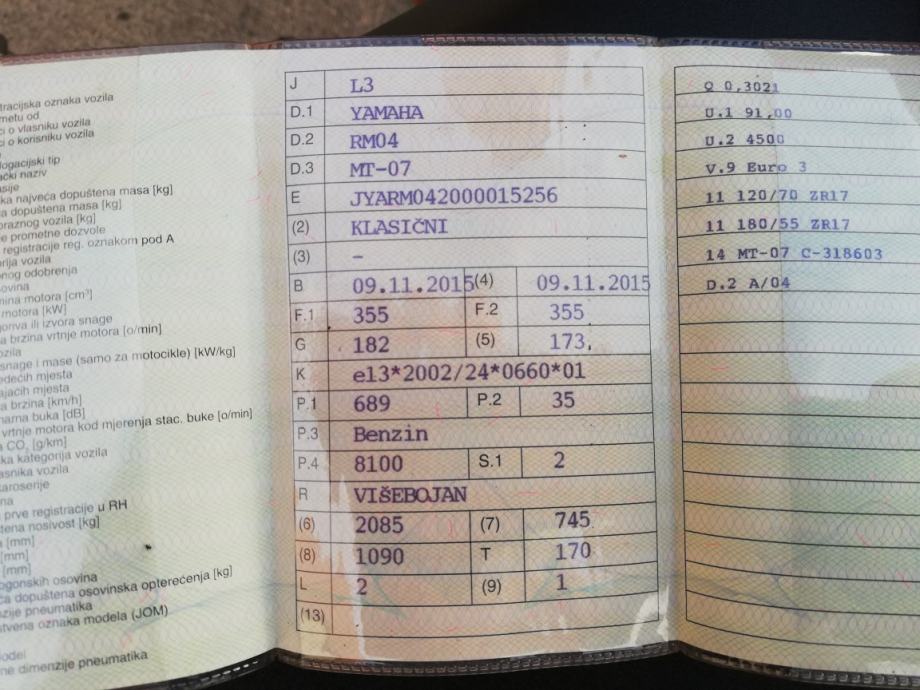 tracijska oznaka vozila
metu od
ci o vlasniku vozila
ci o korisniku vozila
logacijski tip
ački naziv
asije
ka najveća dopuštena masa [kg]
a dopuštena masa [kg]
praznog vozila [kg]
e prometne dozvole
registracije reg. oznakom pod A
orija vozila
nog odobrenja
ovina
mina motora [cm³]
motora [kW]
goriva ili izvora snage
a brzina vrtnje motora [o/min]
ozila
snage i mase (samo za motocikle) [kW/kg]
edećih mjesta
ajaćih mjesta
a brzina [km/h]
narna buka [dB]
vrtnje motora kod mjerenja stac. buke [o/min]
a CO₂ [g/km]
ka kategorija vozila
asnika vozila
karoserije
na
prve registracije u RH
tena nosivost [kg]
[mm]
[mm]
[mm]
ogonskih osovina
ća dopuštena osovinska opterećenja [kg]
zije pneumatika
stvena oznaka modela (JOM)
odel
ne dimenzije pneumatika
J L3
D.1 YAMAHA
D.2 RM04
D.3 MT-07
E JYARM042000015256
(2) KLASIČNI
(3) -
B 09.11.2015 (4) 09.11.2015
F.1 355 F.2 355
G 182 (5) 173,
K e13*2002/24*0660*01
P.1 689 P.2 35
P.3 Benzin
P.4 8100 S.1 2
R VIŠEBOJAN
(6) 2085 (7) 745
(8) 1090 T 170
L 2 (9) 1
(13)
Q 0,3021
U.1 91,00
U.2 4500
V.9 Euro 3
11 120/70 ZR17
11 180/55 ZR17
14 MT-07 C-318603
D.2 A/04